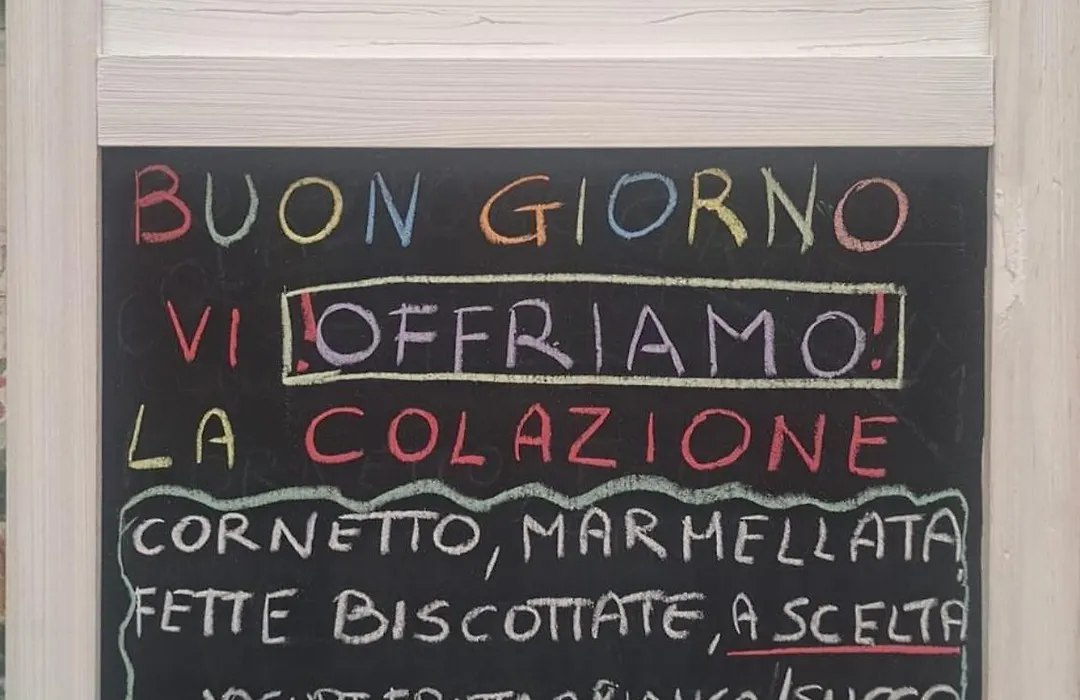 BUON GIORNO
VI !OFFRIAMO!
LA COLAZIONE
CORNETTO, MARMELLATA,
FETTE BISCOTTATE, A SCELTA